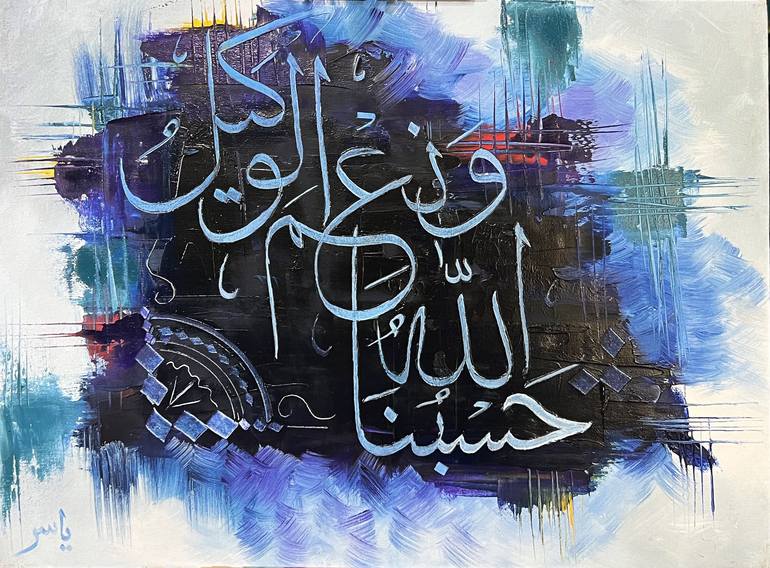 حَسْبُنَا اللّٰهُ
وَنِعْمَ الْوَكِيلُ
ياسر